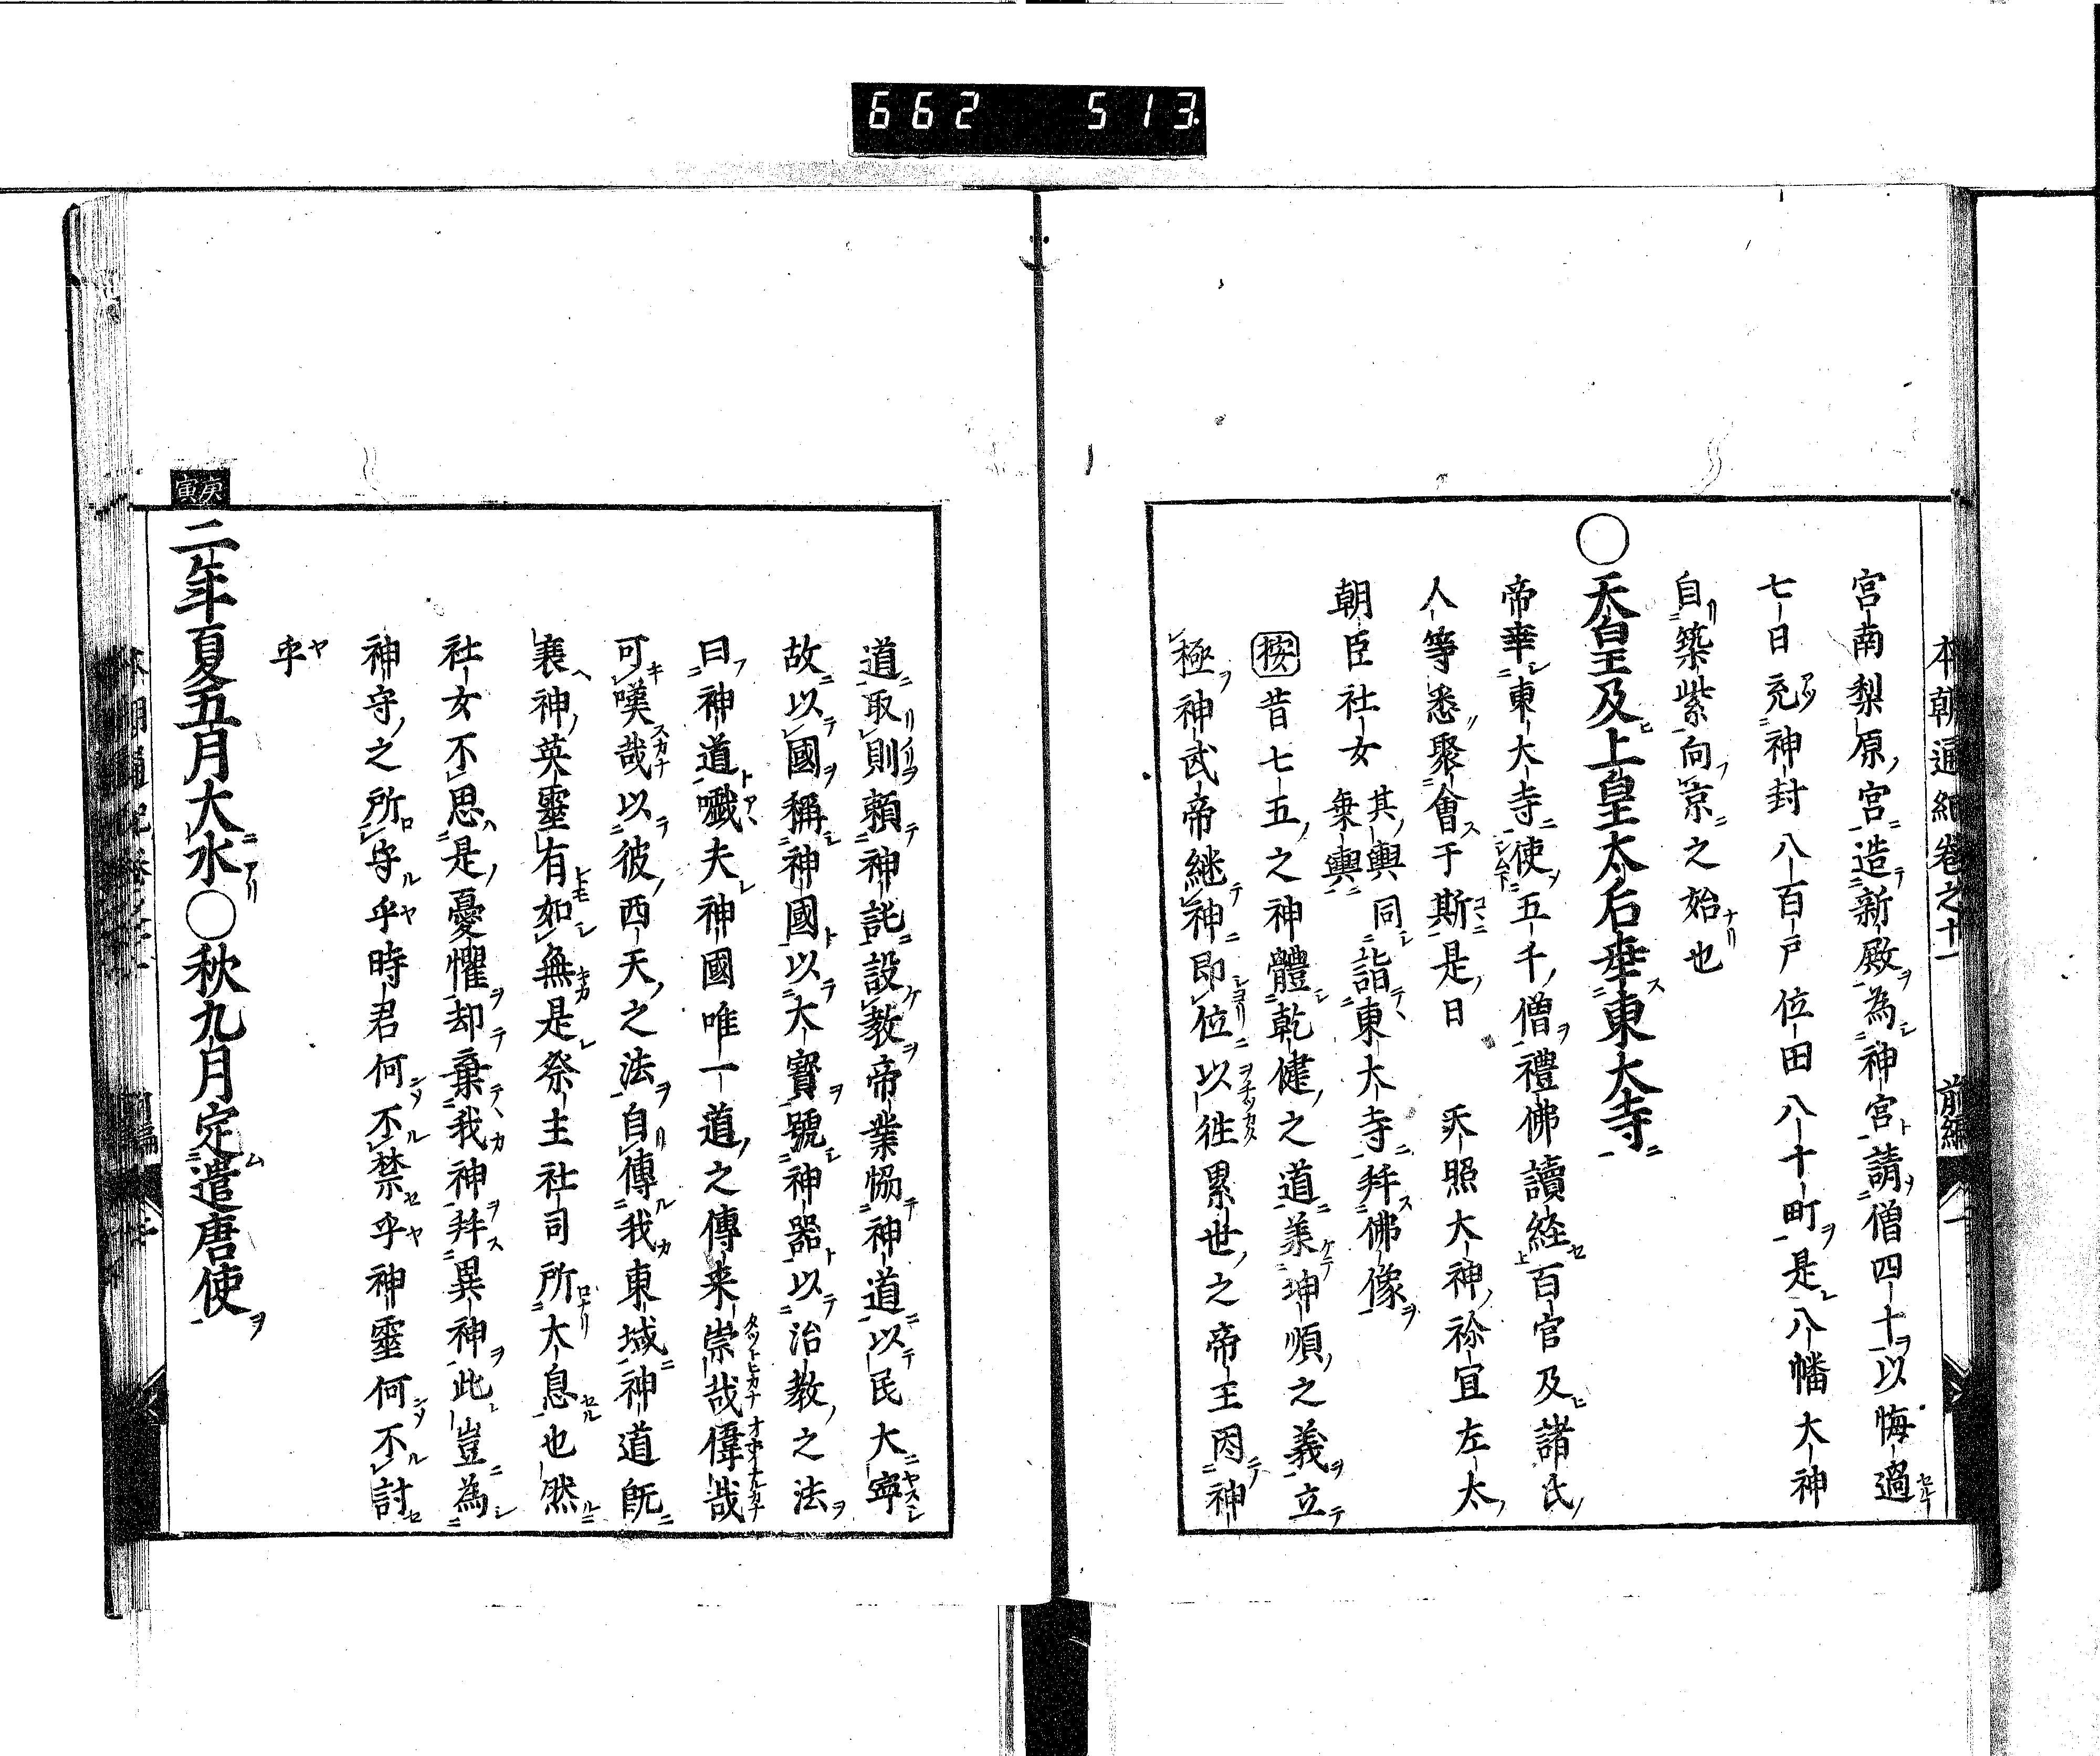 662 513
本朝通紀卷之十一 前編 一
宮南梨原宮造新殿為神宮請僧四十以悔過
七日充神封八百戸位田八十町是八幡大神
自築紫向京之始也
○天皇及上皇太后幸東大寺
帝幸東大寺使五千僧禮佛讀経百官及諸氏
人等悉聚會于斯是日 天照大神祢宜左太
朝臣社女其輿乗輿同詣東大寺拜佛像
按昔七五之神體乾健之道美坤順之義立
極神武帝継神即位以徃累世之帝王因神
道取則頼神託設教帝業恊神道以民大寧
故以國稱神國以大寳號神器以治教之法
曰神道噫夫神國唯一道之傳来崇哉偉哉
可嘆哉以彼西天之法自傳我東域神道既
衰神英靈有如無是祭主社司所大息也然
社女不思是憂懼却棄我神拜異神此豈為
神守之所守乎時君何不禁乎神靈何不討
乎
庚寅
二年夏五月大水○秋九月定遣唐使